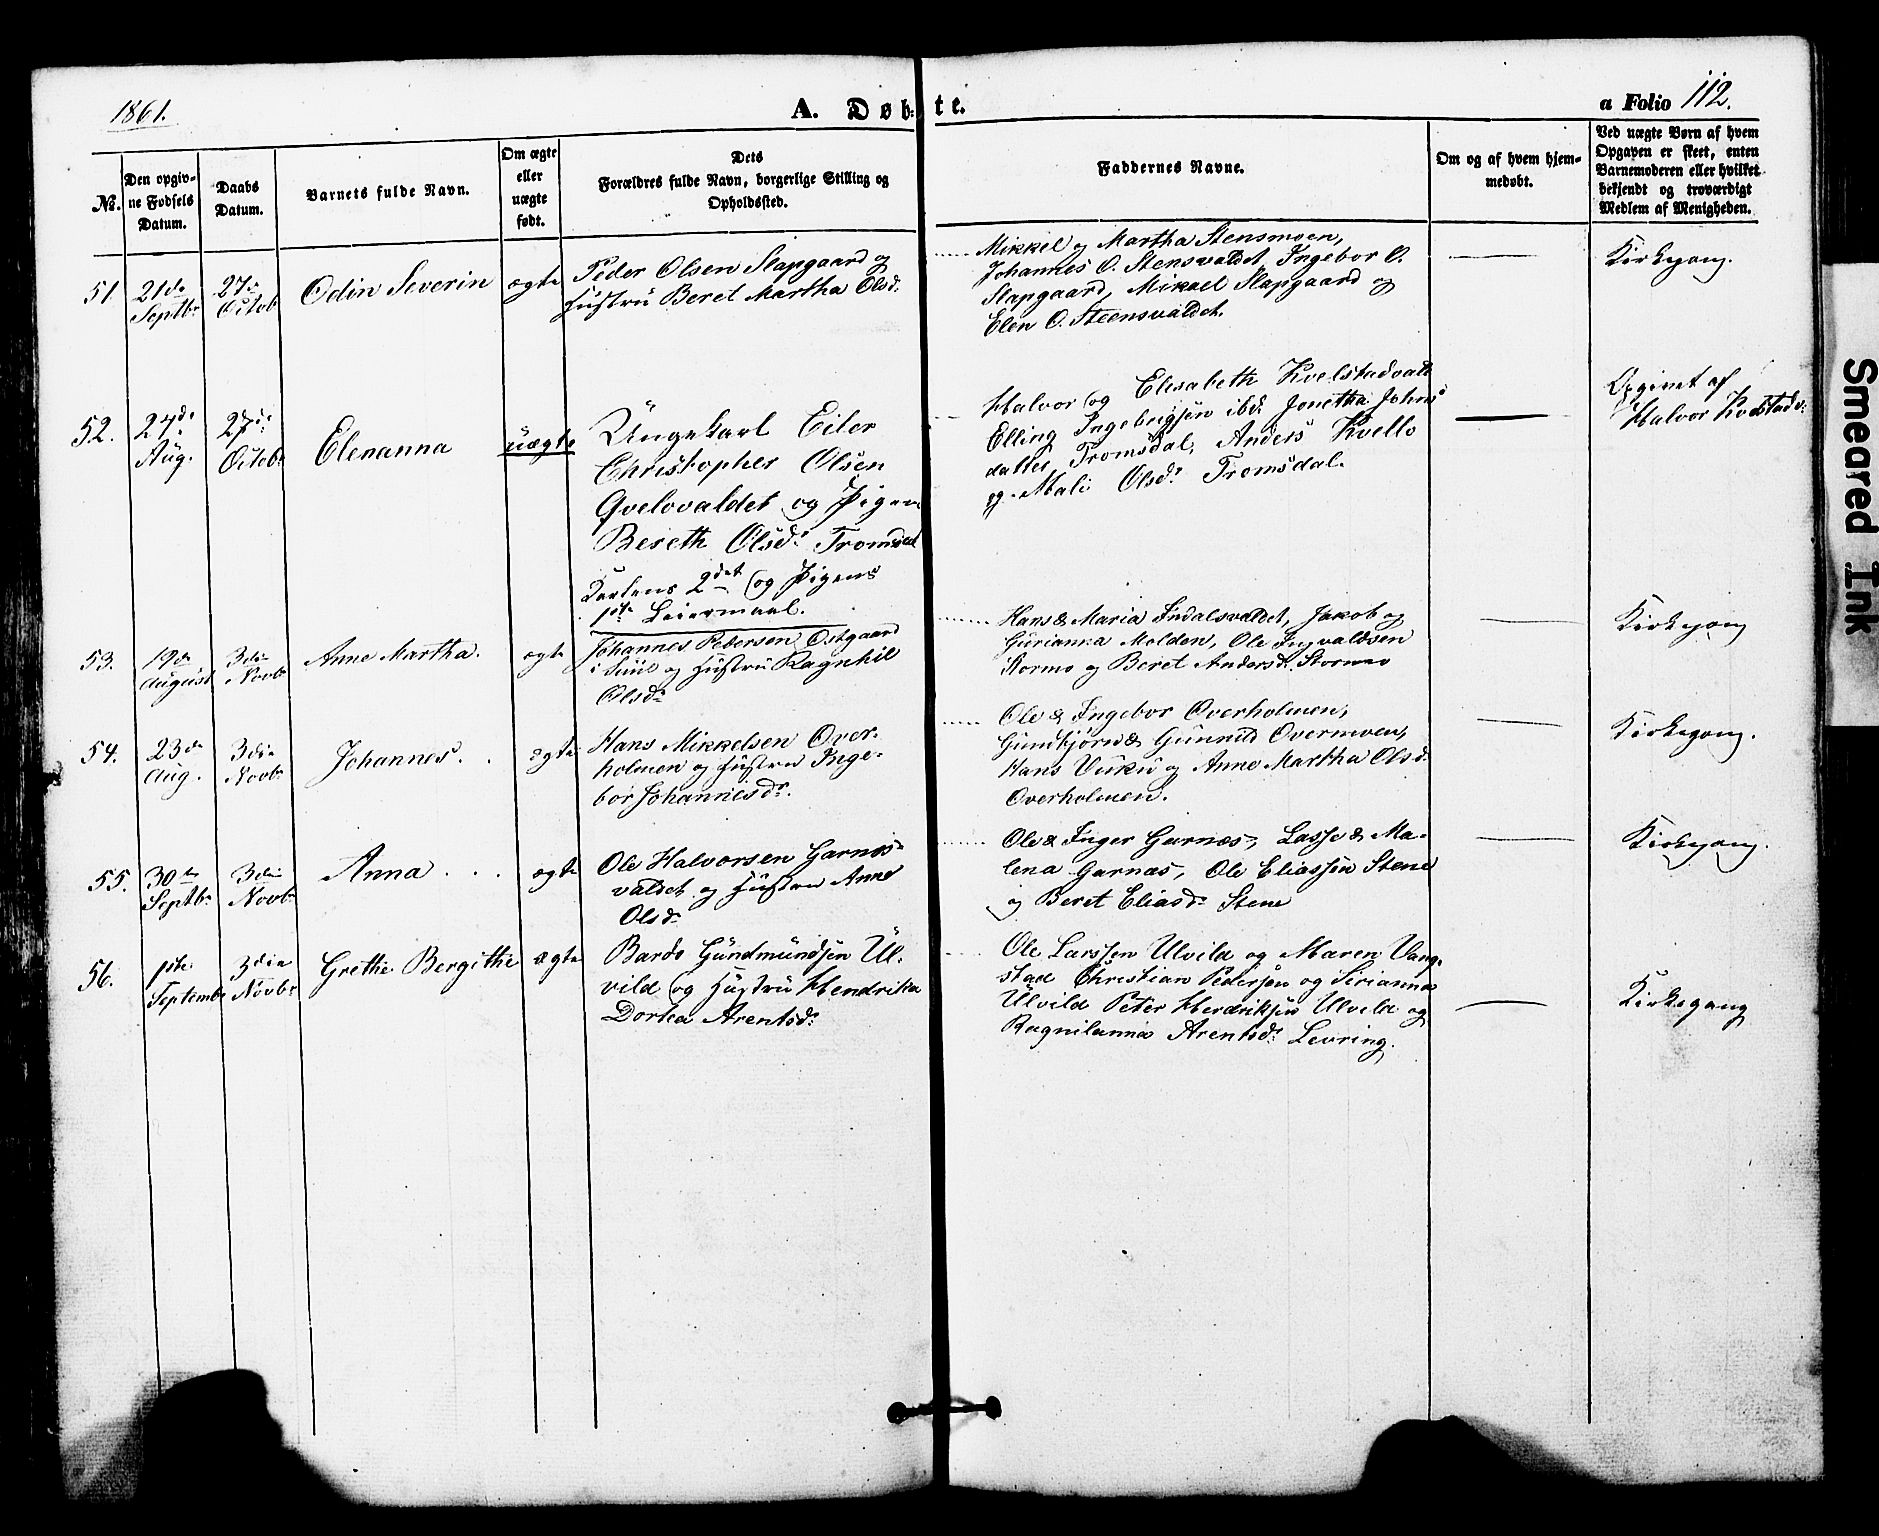 1861.
A. Døb-
te.
a Folio 112.
№.
Den opgiv-
ne Fødsels
Datum.
Daabs
Datum.
Barnets fulde Navn.
Om ægte
eller
uægte
født.
Dets
Forældres fulde Navn, borgerlige Stilling og
Opholdssted.
Faddernes Navne.
Om og af hvem hjem-
medøbt.
Ved uægte Børn af hvem
Opgaven er skeet, enten
Barnemoderen eller hvilket
bekjendt og troværdigt
Medlem af Menigheden.
51.
21de
Septbr
27de
Octob
Odin Severin
ægte
Peder Olsen Slapgaard og
Hustru Beret Martha Olsd.
Mikkel og Martha Stensmoen,
Johannes O. Stensvaldet, Ingebor O.
Slapgaard, Mikael Slapgaard og
Elen O. Steensvaldet.
Kirkegang.
52.
24de
Aug.
27de
Octobr
Elenanna
uægte
Ungekarl Eiler
Christopher Olsen
Qvelovaldet og Pigen
Bereth Olsdr Tromsdal
Karlens 2det og Pigens
1ste Leiermaal.
Halvor og Elisabeth Kvelstadvald
Elling Ingebrigsen ibd. Jonetha Johns
datter Tromsdal, Anders Kvello
og Mali Olsdr Tromsdal.
Opgivet af
Halvor Kvelstadv.
53.
19de
August
3die
Novbr
Anne Martha.
ægte
Johannes Pedersen Østgaard
i Suul og Hustru Ragnhil
Olsdr
Hans & Maria Indalsvaldet, Jakob og
Gurianna Molden, Ole Ingvaldsen
Stormo og Beret Andersdr Stormo
Kirkegang
54.
23de
Aug.
3die
Novbr
Johannes.
ægte
Hans Mikkelsen Over-
holmen og Hustru Inge-
bor Johannesdr.
Ole & Ingebor Overholmen,
Gundbjørn & Gunnild Overmoen,
Hans Vuku og Anne Martha Olsd.
Overholmen.
Kirkegang.
55.
30te
Septbr
3die
Novbr
Anna
ægte
Ole Halvorsen Garnæs-
valdet og Hustru Anne
Olsdr
Ole & Inger Garnæs, Lasse & Ma-
lena Garnæs, Ole Eliassen Stene
og Beret Eliasdr Stene
Kirkegang.
56.
1ste
Septembr
3die
Novbr
Grethe Bergithe
ægte
Bardo Gundmundsen Ul-
vild og Hustru Hendrika
Dorka Arentsdr
Ole Larssen Ulvild og Maren Vang-
stad Christian Pedersen og Sirianna
Ulvild Peter Hendriksen Ulvild og
Ragnilanna Arentsdr Levring.
Kirkegang
Smeared Ink